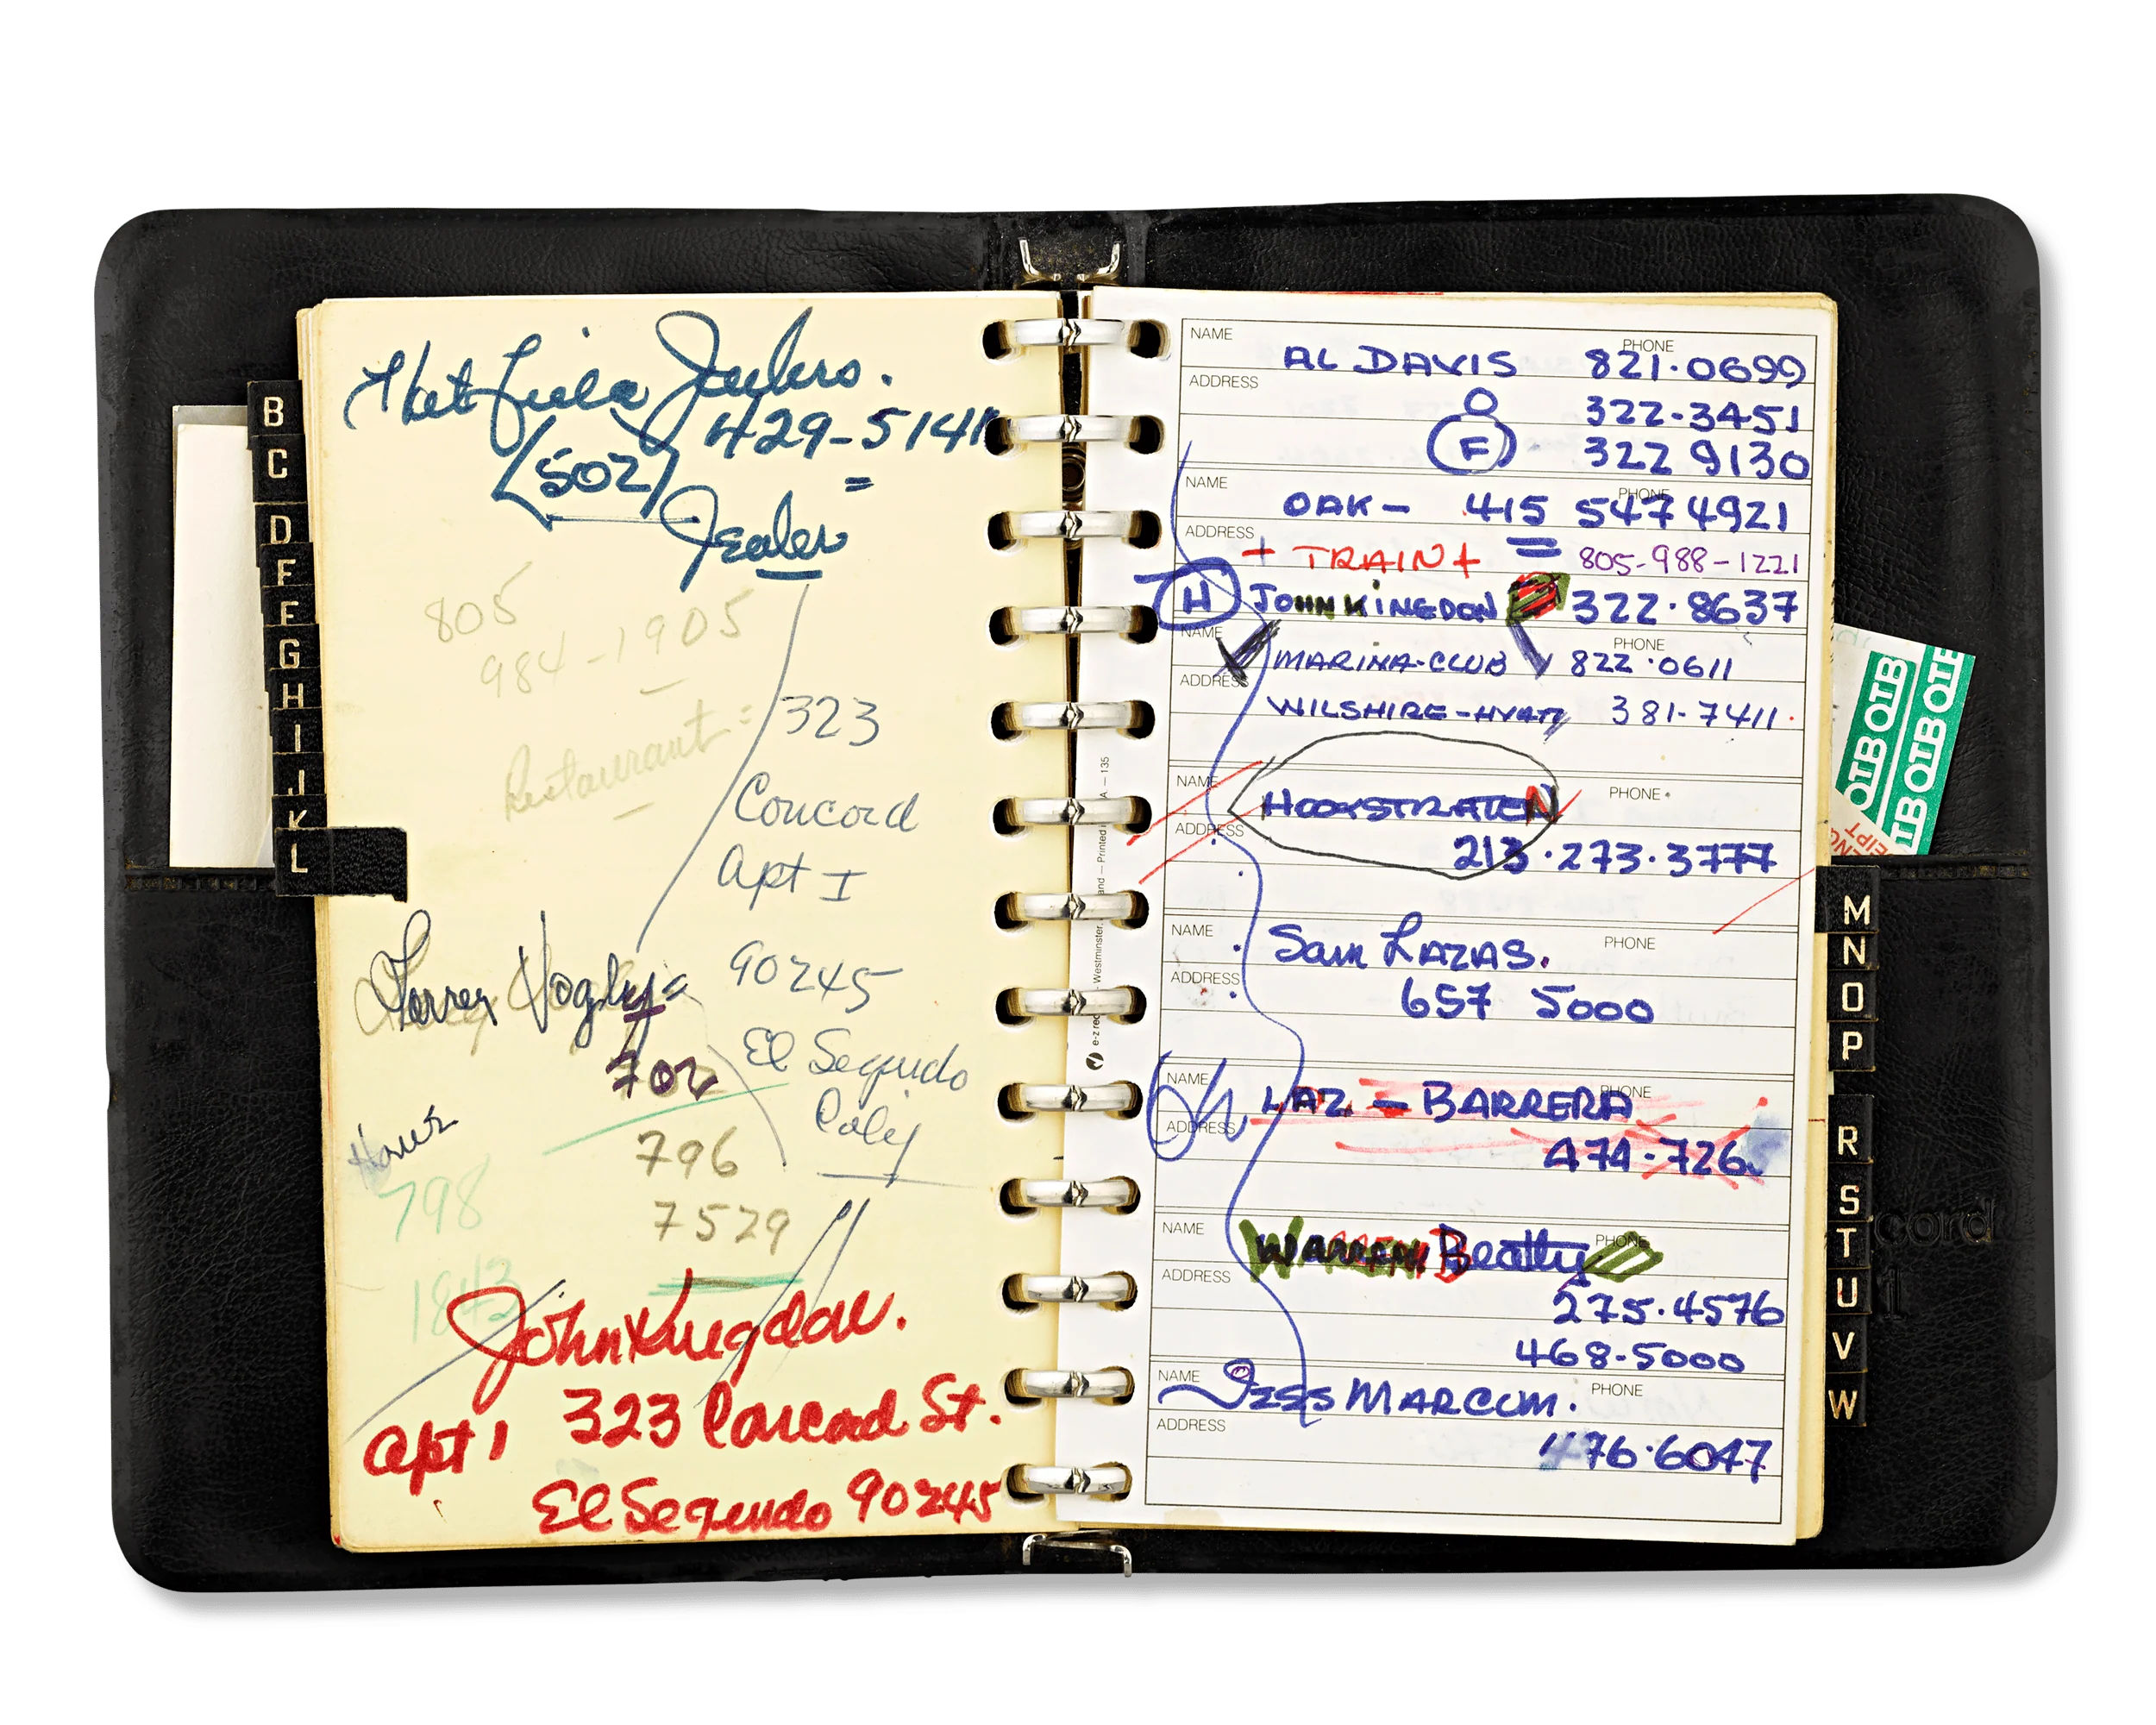 429-5141
(502) =
805
984-1905
Restaurant =
323
Concord
Apt I
90245
El Segundo
Calif
702
796
7529
798
1843
John Kingdon.
323 Concord St.
apt 1
El Segundo 90245
B
C
D
E
F
G
H
I
J
K
L
NAME PHONE
AL DAVIS 821.0699
ADDRESS
O 322-3451
F 322 9130
NAME PHONE
OAK- 415 547 4921
ADDRESS
+ TRAIN + = 805-988-1221
H JOHN KINGDON 322.8637
NAME PHONE
MARINA-CLUB 822.0611
ADDRESS
WILSHIRE-HYATT 381-7411.
NAME PHONE
HOOKSTRATEN
ADDRESS
213.273.3777
NAME PHONE
Sam LAZAS.
ADDRESS
657 5000
NAME PHONE
LAZ - BARRERA
ADDRESS
474.726
NAME PHONE
WARREN Beatty
ADDRESS
275.4576
468-5000
NAME PHONE
JESS MARCUM.
ADDRESS
476.6047
M
N
O
P
R
S
T
U
V
W
OTB OTB
TB OTB OTB
cord